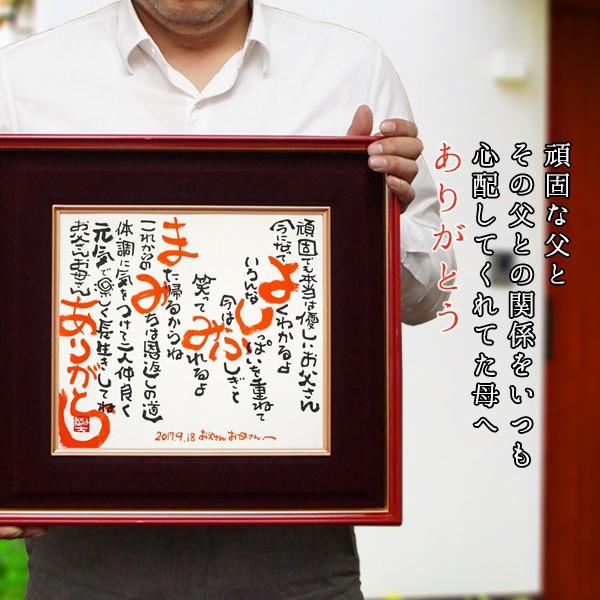 頑固な父と
その父との関係をいつも
心配してくれてた母へ
ありがとう
頑固でも本当は優しいお父さん
今になってよくわかるよ
いろんなしっぱいを重ねて
今はふしぎと
笑ってみれるよ
また帰るからね
これからのみちは恩返しの道
体調に気をつけて二人仲良く
元気で楽しく長生きしてね
お父さんお母さんありがとう
2017.9.18 お父さんお母さんへ